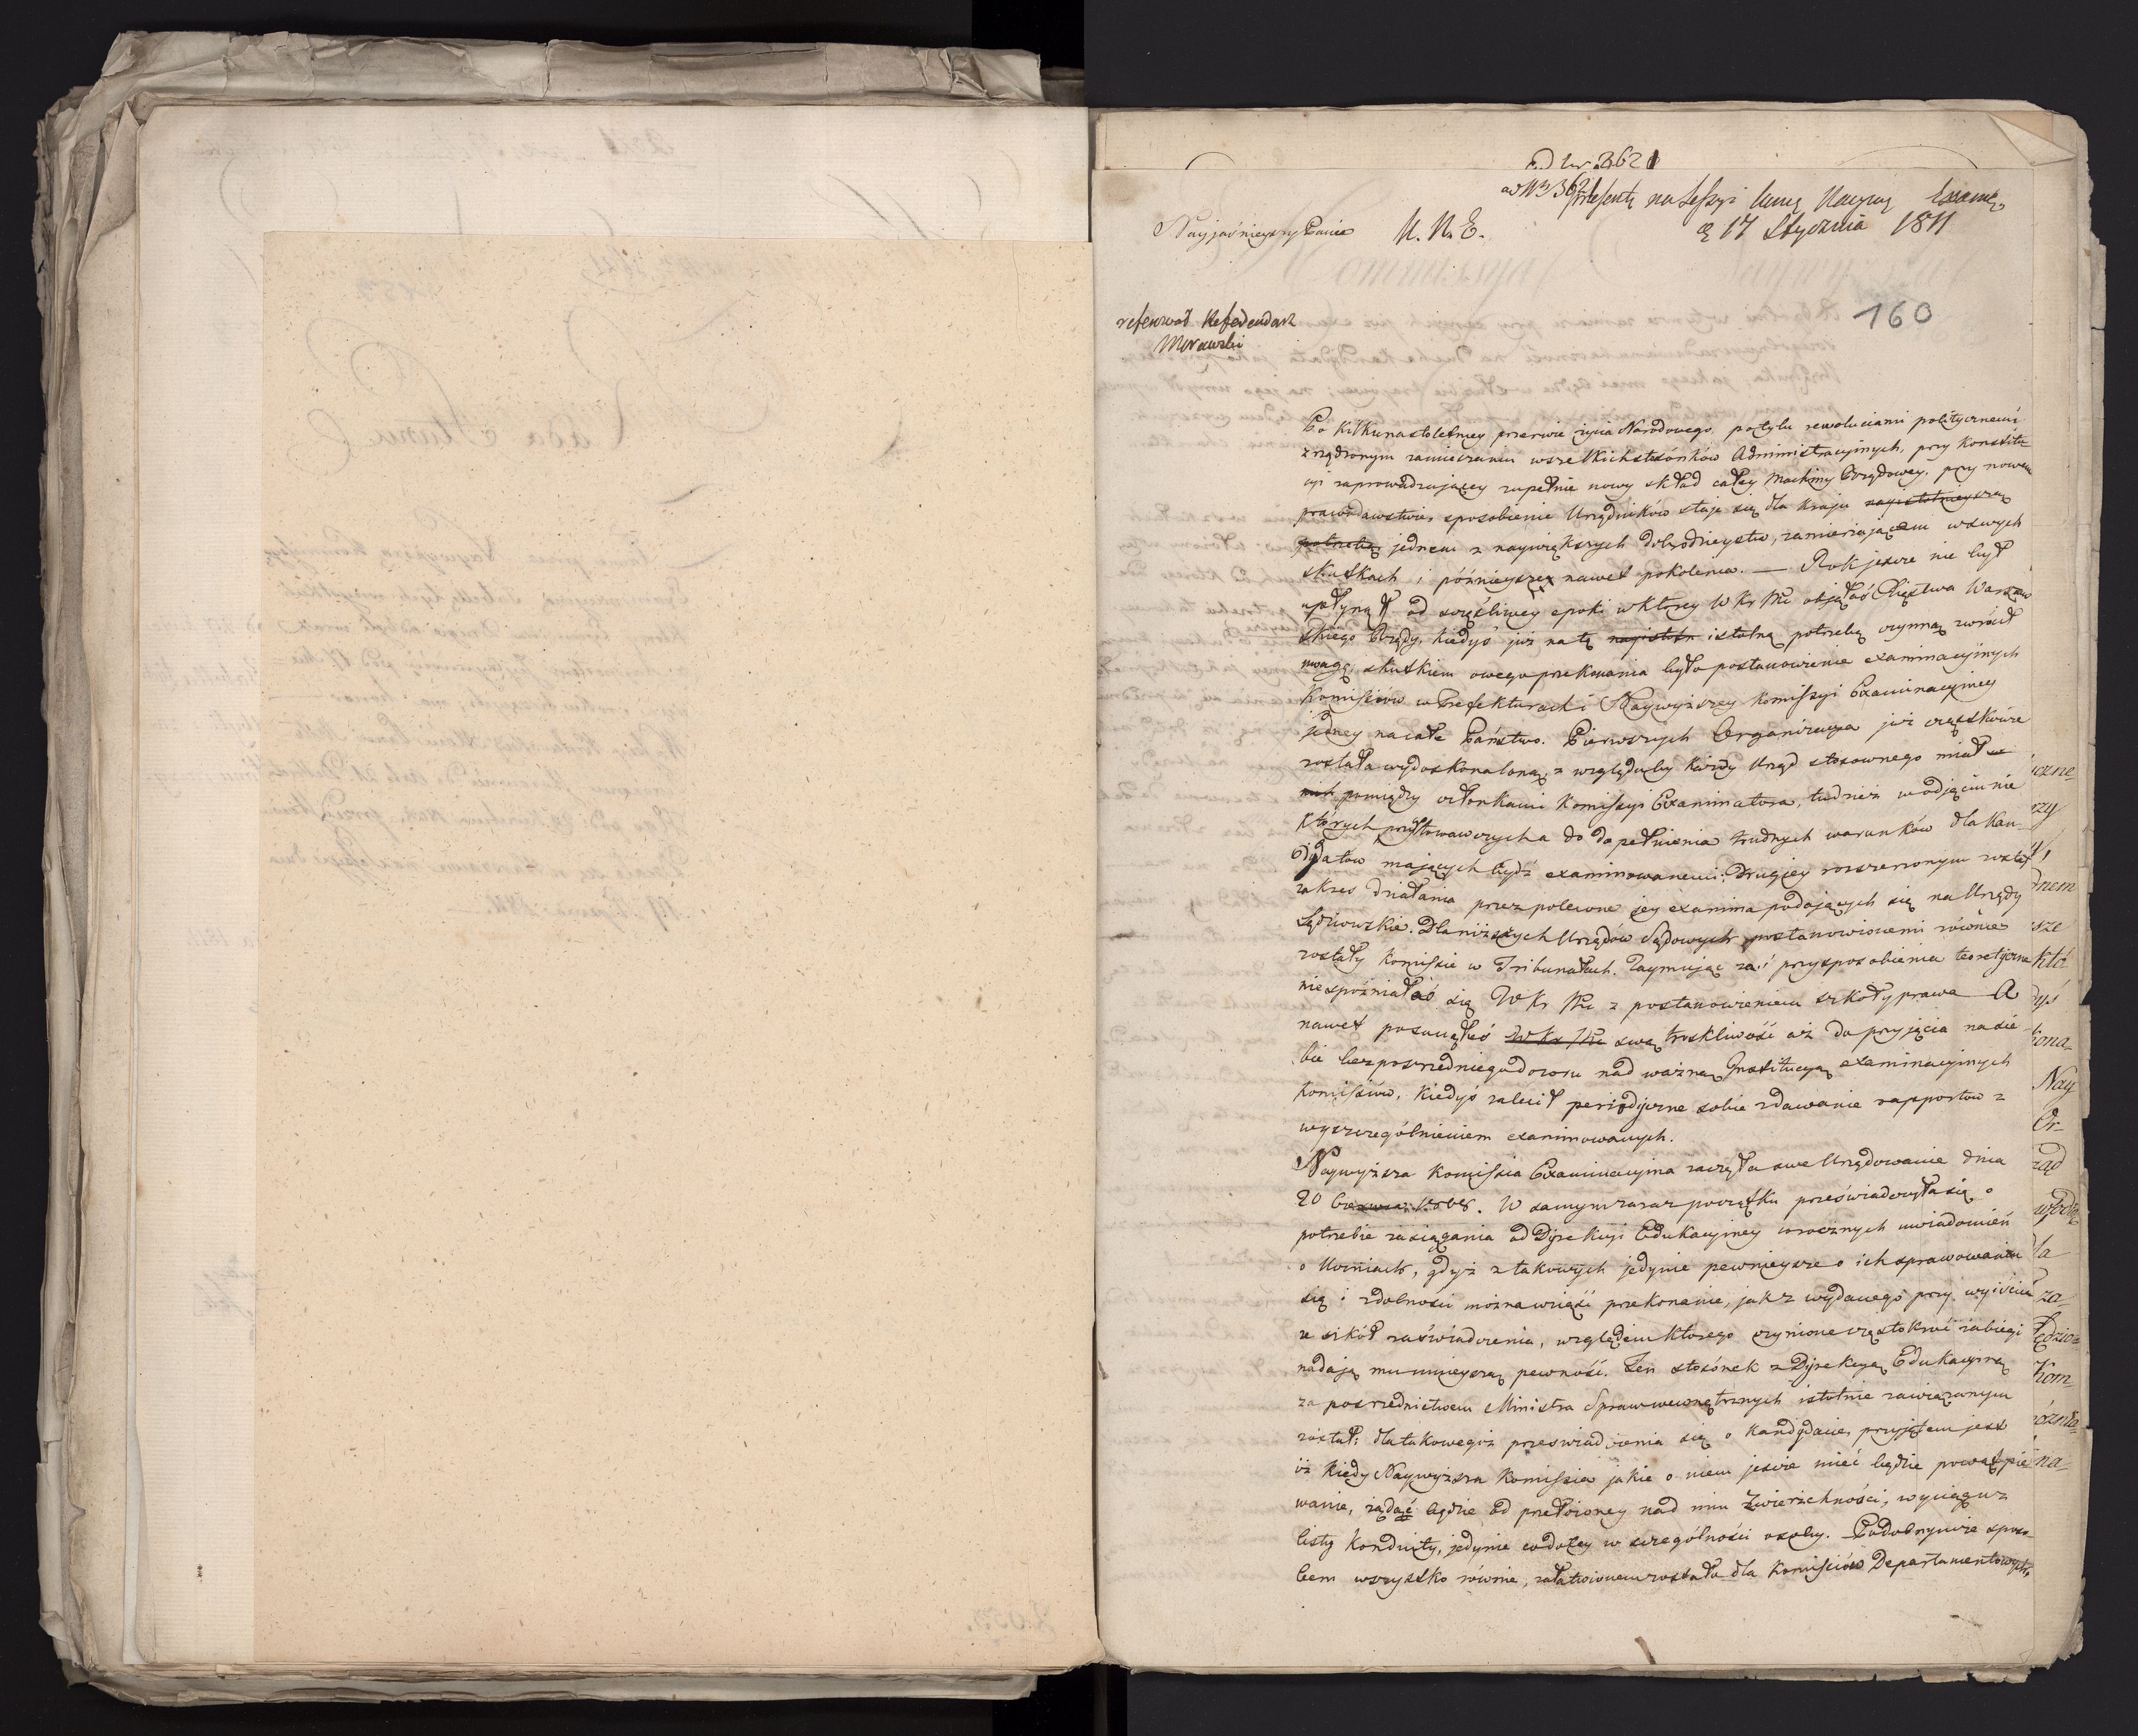 ad Nr 3621
ad Nr 362
na Sessyi
d 17 Stycznia 1811
Nayjaśnieyszy Panie N. N. E.
160
referował Referendarz
Morawski
Po kilkunastoletniey przerwie życia Narodowego, po tylu rewoluciami politycznemi
zrządzonym zamieszaniu wszelkich stosónków Administracyinych, przy Konstitu
cyi zaprowadzającey zupełnie nowy skład całey machiny Rządowey, przy nowem
prawodawstwie, sposobienie Urzędników staje się dla kraju nayistotnieyszą
potrzebą jednem z naywiększych dobrodzieystw, zamierzającem w swych
skutkach i póżnieysze nawet pokolenia. — Rok jeszcze nie był
upłynął od szczęśliwey epoki w ktorey W Kr Mć objąłeś Xięstwa Warszaw
skiego Rządy, kiedyś już na tę istotną potrzebę czynną zwrócił
uwagę, skutkiem owego przekonania było postanowienie examinacyinych
Komissiow w Prefekturach i Naywyższey Komissyi Examinacyiney
jedney na całe Państwo. Pierwszych Organizacya już częstkróć
została wydoskonaloną, z względu by każdy Urząd stosownego miał
pomiędzy członkami Komissyi Examinatora, tudzież w odjęciu nie
których przytowawczych a do dopełnienia trudnych warunków dla Kan
didatow mających bydź examinowanemi; Drugiey rozszerzonym został
zakres działania przez polecone jey examina podających się na Urzędy
Sędziowskie. Dla niższych Urzędów Sądowych postanowionemi równie
zostały Komissie w Tribunałach. Zaymując zaś przysposobienia teoretyczne
nie spoźniałeś się W Kr Mć z postanowieniem szkoły prawa A
nawet posunąłeś W Kr Mć swą troskliwość aż do przyjęcia na sie
bie bezpośredniego dozoru nad ważną Institucyą examinacyinych
Komissiow, Kiedyś zalecił periodyczne sobie zdawanie rapportow z
wyszczególnieniem examinowanych.
Naywyższa Komissia Examinacyina zaczęła swe Urzędowanie dnia
20 Czerwca 1808. W samym zaraz początku przeświadczyła się o
potrzebie zasiągania od Dyrekcyi Edukacyiney corocznych uwiadomień
o Uczniach, gdyż z takowych jedynie pewnieysze o ich sprawowaniu
się i zdolności można wziąść przekonanie, jak z wydanego przy wyiściu
ze szkół zaświadczenia, względem ktorego czynione częstokroć zabiegi
nadają mu mnieyszą pewność. Ten stosónek z Dyrekcyą Edukacyiną
za posrzednictwem Ministra Spraw wewnętrznych istotnie zawiązanym
został; dla takowegoż przeswiadczenia się o Kandydacie, przyjętem jest
iż kiedy Naywyższa Komissia jakie o niem jeszcze mieć będzie powątpie
wanie, żądać będzie od przełożoney nad nim Zwierzchności, wyciągu z
listy konduity, jedynie co do tey w szczególności osoby. Podobnymże sposo
bem wszystko równie, załatwionem zostało dla Komissiów Departamentowych,